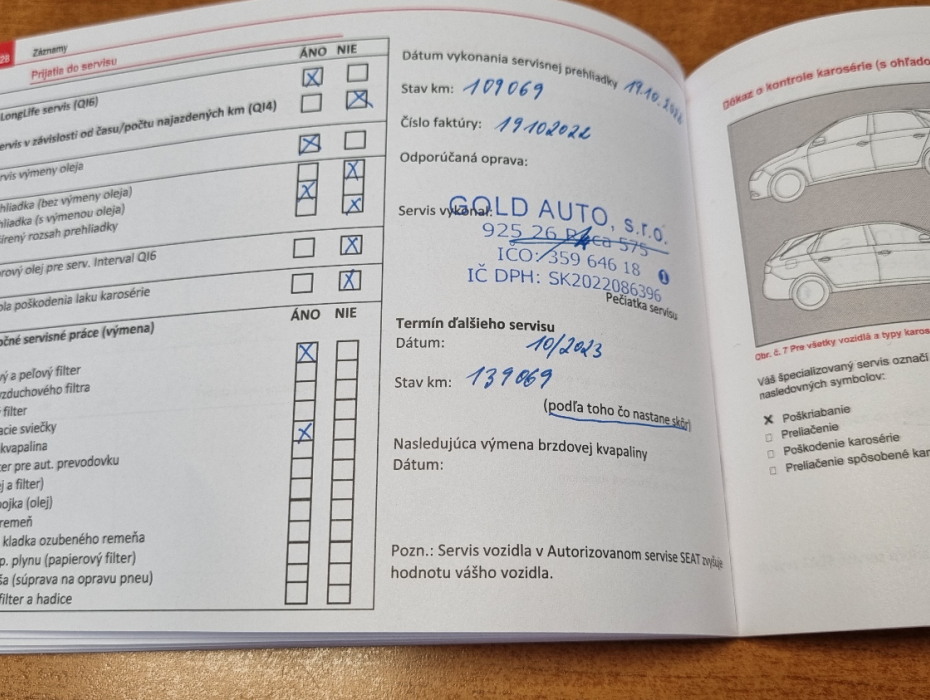 28
Záznamy
Prijatia do servisu
ÁNO NIE
LongLife servis (QI6)
servis v závislosti od času/počtu najazdených km (QI4)
rvis výmeny oleja
hliadka (bez výmeny oleja)
hliadka (s výmenou oleja)
írený rozsah prehliadky
orový olej pre serv. Interval QI6
ola poškodenia laku karosérie
očné servisné práce (výmena)
ÁNO NIE
vý a peľový filter
vzduchového filtra
filter
acie sviečky
kvapalina
er pre aut. prevodovku
j a filter)
ojka (olej)
remeň
kladka ozubeného remeňa
p. plynu (papierový filter)
ša (súprava na opravu pneu)
filter a hadice
Dátum vykonania servisnej prehliadky 19.10.
Stav km: 109069
Číslo faktúry: 19102022
Odporúčaná oprava:
Servis vykonal:
GOLD AUTO, s.r.o.
925 26 575
IČO: 359 646 18
IČ DPH: SK2022086396
Pečiatka servisu
Termín ďalšieho servisu
Dátum: 10/2023
Stav km: 139069
(podľa toho čo nastane skôr)
Nasledujúca výmena brzdovej kvapaliny
Dátum:
Pozn.: Servis vozidla v Autorizovanom servise SEAT zvyšuje
hodnotu vášho vozidla.
Dôkaz o kontrole karosérie (s ohľado
Obr. č. 7 Pre všetky vozidlá a typy karos
Váš špecializovaný servis označí
nasledovných symbolov:
X Poškriabanie
Preliačenie
Poškodenie karosérie
Preliačenie spôsobené kar